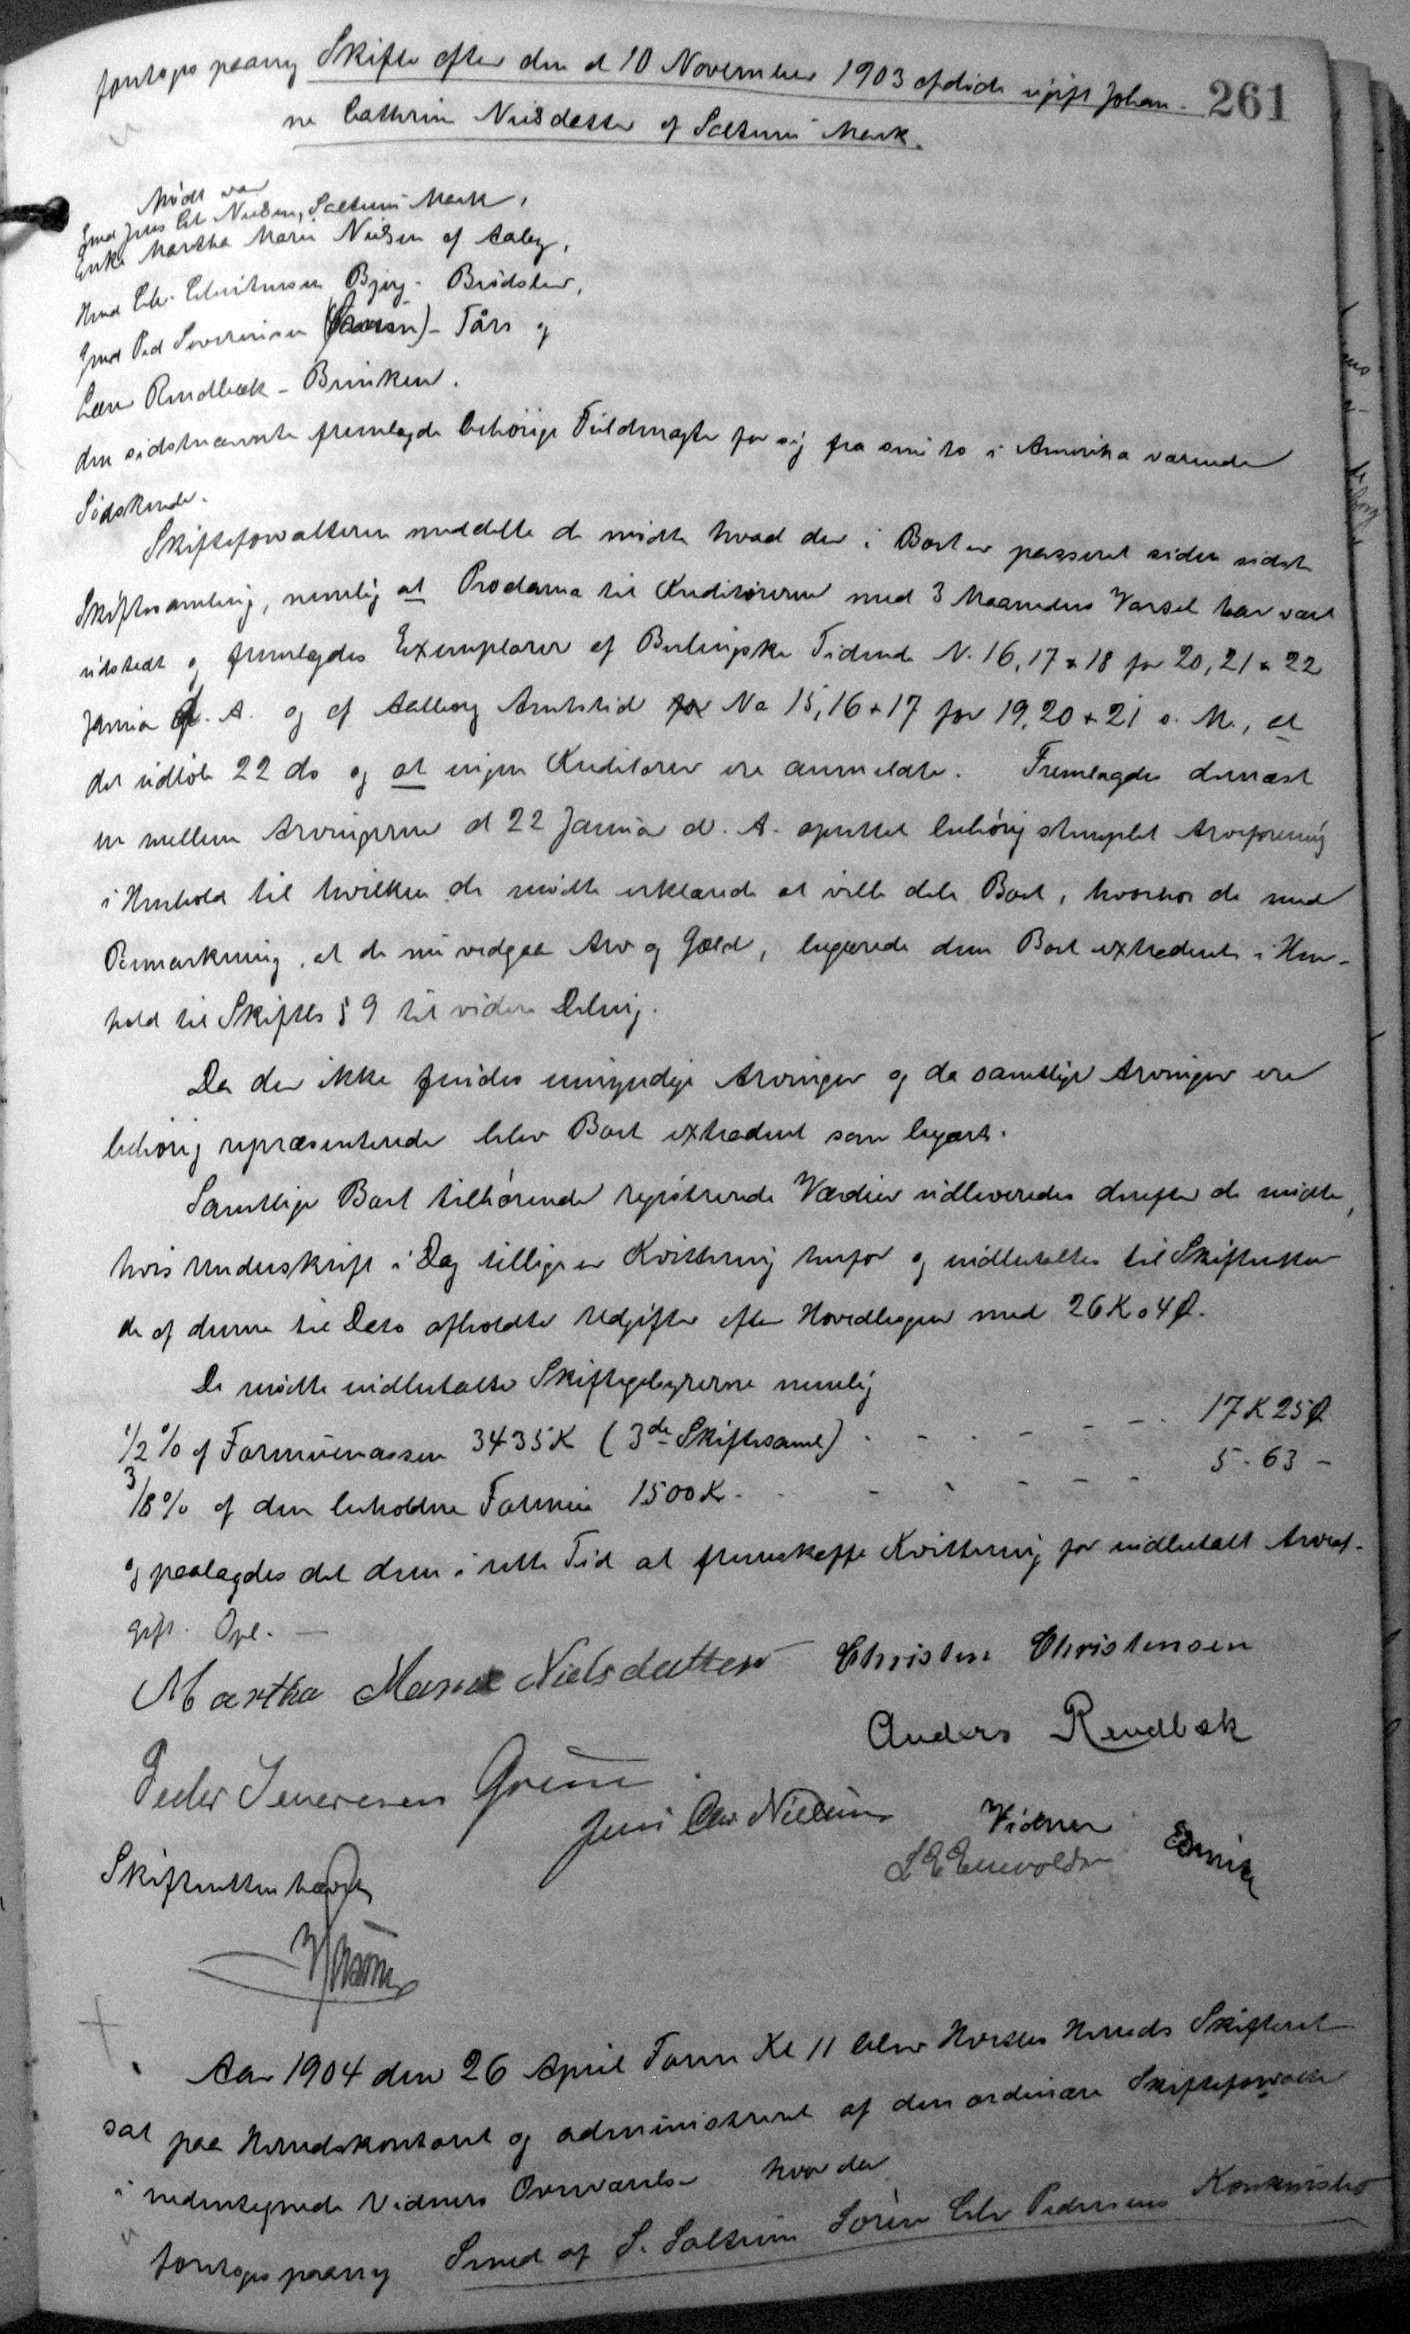 foretoges paany Skifte efter den d 10 November 1903 afdøde ugift Johan- 261
ne Cathrine Nielsdatter af Saltum Mark.
Mødt var
Gmd Jens Chr Nielsen, Saltum Mark,
Enke Martha Marie Nielsen af Aaby,
Hmd Chr. Christensen Bjerg - Brødslev,
Gmd Ped Severinsen (Grøn) - Tårs og
Lærer Rendbæk - Brinken.
den sidstnævnte fremlagde behørige Fuldmagter for sig fra sine to i Amerika værende
Södskende.
Skifteforvalteren meddelte de mødte hvad der i Boet er passeret siden sidste
Skiftesamling, nemlig at Proclama til Kreditorerne med 3 Maaneders Varsel har været
udstedt og fremlagdes Exemplarer af Berlingske Tidende N. 16, 17 & 18 for 20, 21 & 22
Januar d. A. og af Aalborg Amtstid No 15, 16 + 17 for 19, 20 + 21 s. M., at
det udløb 22 do og at ingen Kreditorer ere anmeldte. Fremlagdes dernæst
en mellem Arvingerne d 22 Januar d. A. oprettet behørig stemplet Arveforening
i Henhold til hvilken de mødte erklærede at ville dele Boet, hvorhos de med
Bemærkning, at de nu vedgaa Arv og Gæld, begærede dem Boet extraderet i Hen-
hold til Skiftels § 9 til videre Deling.
Da der ikke findes umyndige Arvinger og da samtlige Arvinger ere
behørig repræsenterede blev Boet extraderet som begært.
Samtlige Boet tilhørende registrerede Værdier udleveredes derefter de mødte,
hvis Underskrift i Dag tillige er Kvittering herfor og indbetaltes til Skifteretten
de af denne til Dato afholdte Udgifter efter Hovedbogen med 26 K 04 Ø.
De mødte indbetalte Skiftegebyrerne nemlig
1/2 % af Formuemassen 3435 K (3de Skiftesaml) . - . - - - . 17 K 25 Ø
3/8 % af den beholdne Formue 1500 K. - - - - - 5 - 63 -
og paalagdes det dem i rette Tid at fremskaffe Kvittering for indbetalt Arveaf-
gift. Opl. —
Martha Marie Nielsdatter Christen Christensen
Anders Rendbæk
Peder Severinsen Grøn
Jens Chr Nielsen Vidner
Skifteretten hævet
Aar 1904 den 26 April Form Kl 11 blev Hvetbo Herreds Skifteret
sat paa Herredskontoret og administreret af den ordinære Skifteforvalter
i nedentegnede Vidners Overværelse hvor da
foretoges paany Smed af S. Saltum Søren Chr Pedersens Konkursbo